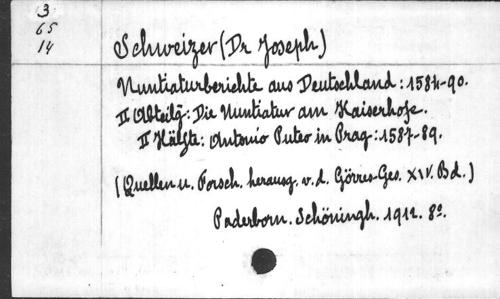 3
65
14
Schweizer (Dr Joseph)
Nuntiaturberichte aus Deutschland: 1584-90.
II Abteilg: Die Nuntiatur am Kaiserhofe.
II Hälfte: Antonio Puteo in Prag: 1587-89.
(Quellen u. Forsch. herausg. v. d. Görres-Ges. XIV. Bd.)
Paderborn. Schöningh. 1912. 8º.